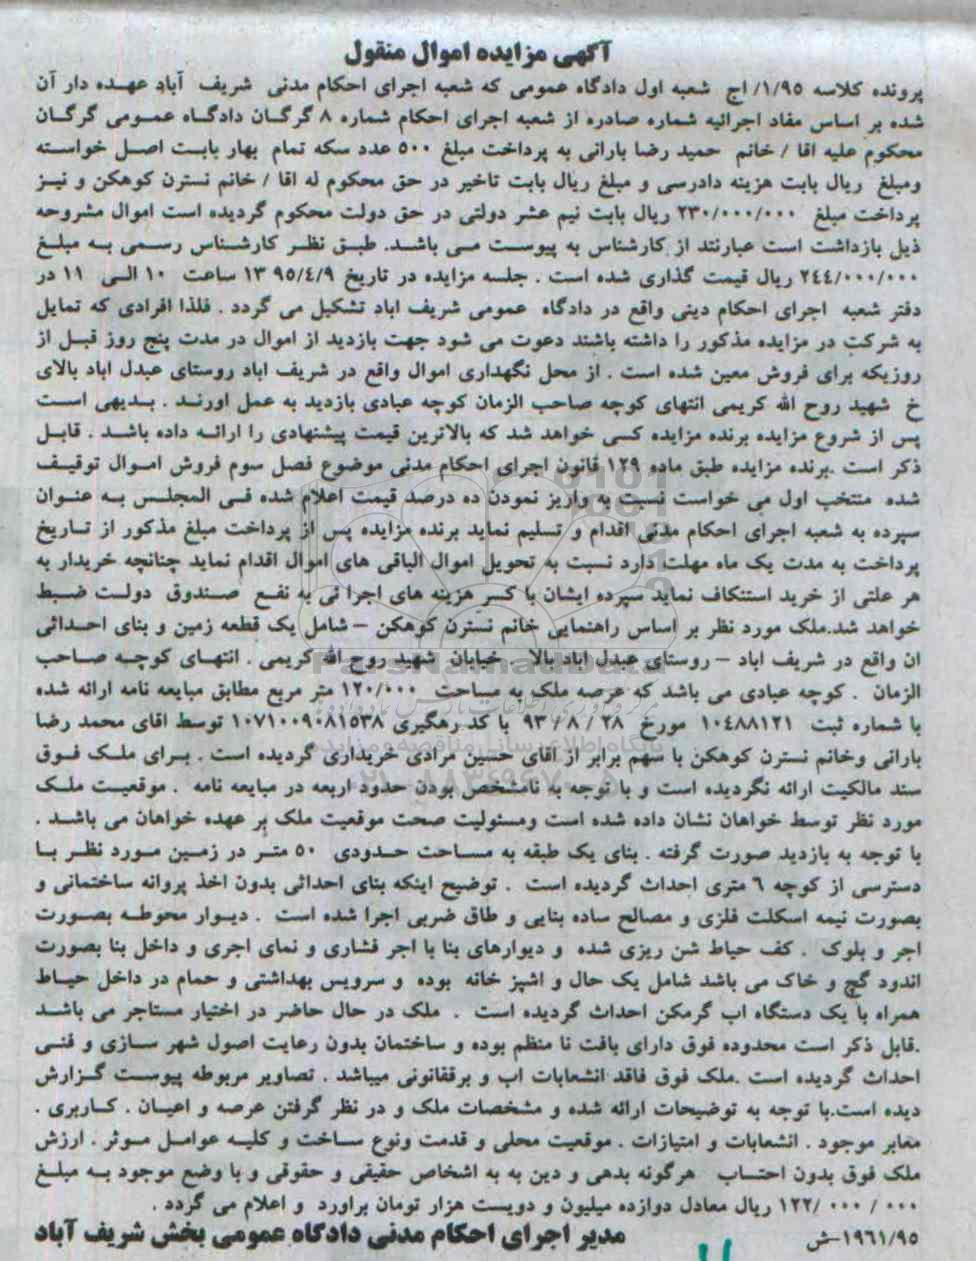 آگهی مزایده اموال منقول
پرونده کلاسه ۱/۹۵/ اج شعبه اول دادگاه عمومی که شعبه اجرای احکام مدنی شریف آباد عهده دار آن
شده بر اساس مفاد اجرائیه شماره صادره از شعبه اجرای احکام شماره ۸ گرگان دادگاه عمومی گرگان
محکوم علیه اقا / خانم حمید رضا بارانی به پرداخت مبلغ ۵۰۰ عدد سکه تمام بهار بابت اصل خواسته
ومبلغ ریال بابت هزینه دادرسی و مبلغ ریال بابت تاخیر در حق محکوم له اقا / خانم نسترن کوهکن و نیز
پرداخت مبلغ ۲۳۰/۰۰۰/۰۰۰ ریال بابت نیم عشر دولتی در حق دولت محکوم گردیده است اموال مشروحه
ذیل بازداشت است عبارتند از کارشناس به پیوست می باشد. طبق نظر کارشناس رسمی به مبلغ
۲۴۴/۰۰۰/۰۰۰ ریال قیمت گذاری شده است . جلسه مزایده در تاریخ ۱۳۹۵/۴/۹ ساعت ۱۰ الی ۱۱ در
دفتر شعبه اجرای احکام دینی واقع در دادگاه عمومی شریف اباد تشکیل می گردد . فلذا افرادی که تمایل
به شرکت در مزایده مذکور را داشته باشند دعوت می شود جهت بازدید از اموال در مدت پنج روز قبل از
روزیکه برای فروش معین شده است . از محل نگهداری اموال واقع در شریف اباد روستای عبدل اباد بالای
خ شهید روح الله کریمی انتهای کوچه صاحب الزمان کوچه عبادی بازدید به عمل اورند . بدیهی است
پس از شروع مزایده برنده مزایده کسی خواهد شد که بالاترین قیمت پیشنهادی را ارائه داده باشد . قابل
ذکر است .برنده مزایده طبق ماده ۱۲۹ قانون اجرای احکام مدنی موضوع فصل سوم فروش اموال توقیف
شده منتخب اول می خواست نسبت به واریز نمودن ده درصد قیمت اعلام شده فی المجلس به عنوان
سپرده به شعبه اجرای احکام مدنی اقدام و تسلیم نماید برنده مزایده پس از پرداخت مبلغ مذکور از تاریخ
پرداخت به مدت یک ماه مهلت دارد نسبت به تحویل اموال الباقی های اموال اقدام نماید چنانچه خریدار به
هر علتی از خرید استنکاف نماید سپرده ایشان با کسر هزینه های اجرا ئی به نفع صندوق دولت ضبط
خواهد شد.ملک مورد نظر بر اساس راهنمایی خانم نسترن کوهکن – شامل یک قطعه زمین و بنای احداثی
ان واقع در شریف اباد – روستای عبدل اباد بالا . خیابان شهید روح الله کریمی . انتهای کوچه صاحب
الزمان . کوچه عبادی می باشد که عرصه ملک به مساحت ۱۲۰/۰۰۰ متر مربع مطابق مبایعه نامه ارائه شده
با شماره ثبت ۱۰۴۸۸۱۲۱ مورخ ۲۸ / ۸ / ۹۳ با کد رهگیری ۱۰۷۱۰۰۹۰۸۱۵۳۸ توسط اقای محمد رضا
بارانی وخانم نسترن کوهکن با سهم برابر از آقای حسین مرادی خریداری گردیده است . برای ملک فوق
سند مالکیت ارائه نگردیده است و با توجه به نامشخص بودن حدود اربعه در مبایعه نامه . موقعیت ملک
مورد نظر توسط خواهان نشان داده شده است ومسئولیت صحت موقعیت ملک بر عهده خواهان می باشد .
با توجه به بازدید صورت گرفته . بنای یک طبقه به مساحت حدودی ۵۰ متر در زمین مورد نظر با
دسترسی از کوچه ۶ متری احداث گردیده است . توضیح اینکه بنای احداثی بدون اخذ پروانه ساختمانی و
بصورت نیمه اسکلت فلزی و مصالح ساده بنایی و طاق ضربی اجرا شده است . دیوار محوطه بصورت
اجر و بلوک . کف حیاط شن ریزی شده و دیوارهای بنا با اجر فشاری و نمای اجری و داخل بنا بصورت
اندود گچ و خاک می باشد شامل یک حال و اشپز خانه بوده و سرویس بهداشتی و حمام در داخل حیاط
همراه با یک دستگاه اب گرمکن احداث گردیده است . ملک در حال حاضر در اختیار مستاجر می باشد
.قابل ذکر است محدوده فوق دارای بافت نا منظم بوده و ساختمان بدون رعایت اصول شهر سازی و فنی
احداث گردیده است .ملک فوق فاقد انشعابات اب و برقفانونی میباشد . تصاویر مربوطه پیوست گزارش
دیده است.با توجه به توضیحات ارائه شده و مشخصات ملک و در نظر گرفتن عرصه و اعیان . کاربری .
معابر موجود . انشعابات و امتیازات . موقعیت محلی و قدمت ونوع ساخت و کلیه عوامل موثر . ارزش
ملک فوق بدون احتساب هرگونه بدهی و دین به به اشخاص حقیقی و حقوقی و با وضع موجود به مبلغ
۱۲۲/ ۰۰۰ / ۰۰۰ ریال معادل دوازده میلیون و دویست هزار تومان براورد و اعلام می گردد .
۱۹۶۱/۹۵-ش مدیر اجرای احکام مدنی دادگاه عمومی بخش شریف آباد
ParsNamadData
پایگاه اطلاع رسانی مناقصه و مزایده